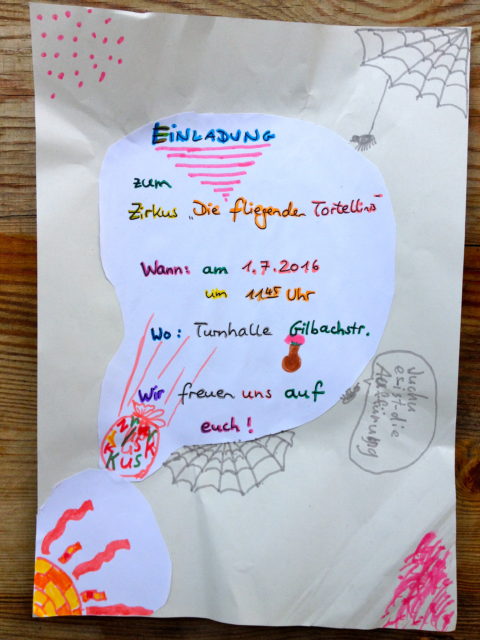 EINLADUNG
zum
Zirkus „Die fliegenden Tortellinis"
Wann: am 1.7.2016
um 11 45 Uhr
Wo: Turnhalle Gilbachstr.
Wir freuen uns auf
euch!
Juchu
es ist die
Aufführung